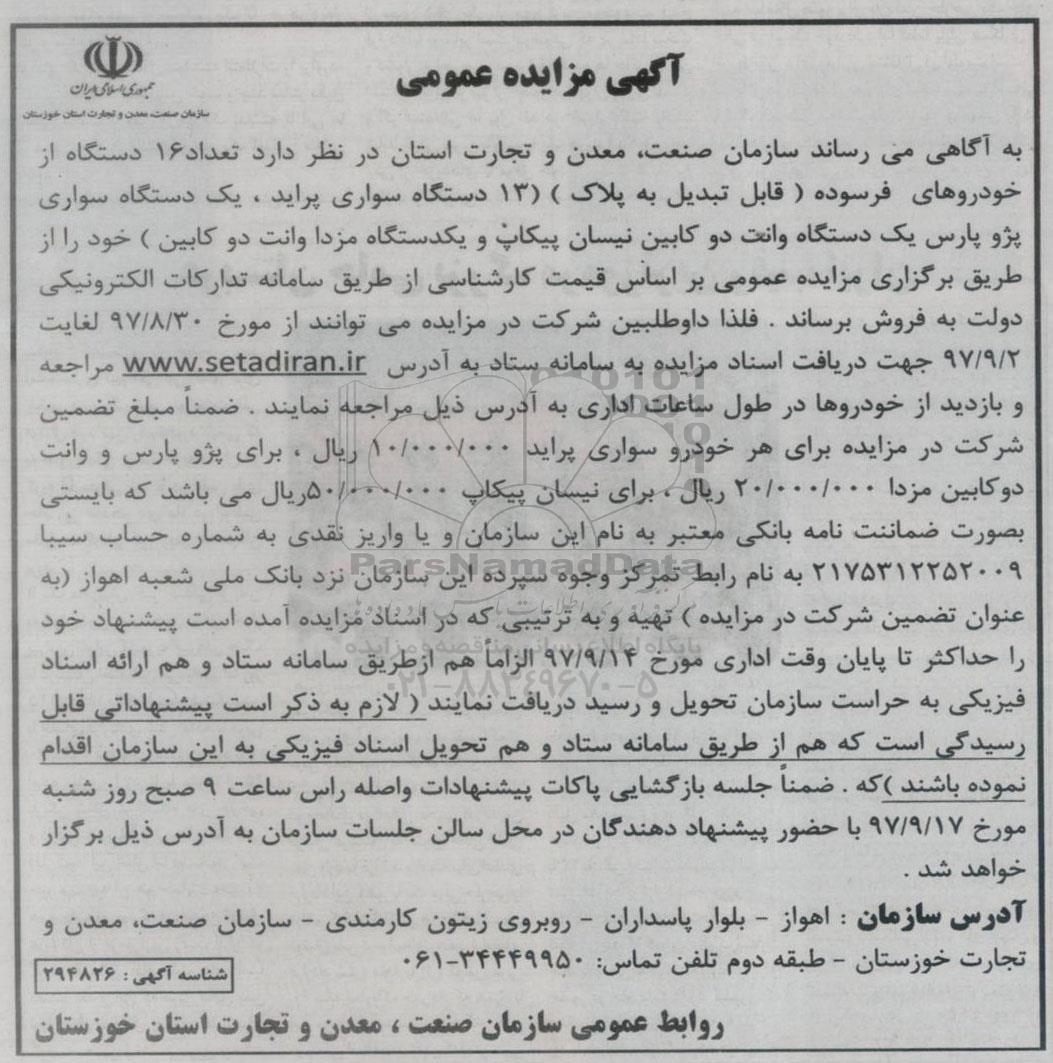 جمهوری اسلامی ایران
سازمان صنعت، معدن و تجارت استان خوزستان
آگهی مزایده عمومی
به آگاهی می رساند سازمان صنعت، معدن و تجارت استان در نظر دارد تعداد۱۶ دستگاه از
خودروهای فرسوده ( قابل تبدیل به پلاک ) (۱۳ دستگاه سواری پراید ، یک دستگاه سواری
پژو پارس یک دستگاه وانت دو کابین نیسان پیکاپ و یکدستگاه مزدا وانت دو کابین ) خود را از
طریق برگزاری مزایده عمومی بر اساس قیمت کارشناسی از طریق سامانه تدارکات الکترونیکی
دولت به فروش برساند . فلذا داوطلبین شرکت در مزایده می توانند از مورخ ۹۷/۸/۳۰ لغایت
۹۷/۹/۲ جهت دریافت اسناد مزایده به سامانه ستاد به آدرس www.setadiran.ir مراجعه
و بازدید از خودروها در طول ساعات اداری به آدرس ذیل مراجعه نمایند . ضمناً مبلغ تضمین
شرکت در مزایده برای هر خودرو سواری پراید ۱۰/۰۰۰/۰۰۰ ریال ، برای پژو پارس و وانت
دوکابین مزدا ۲۰/۰۰۰/۰۰۰ ریال ، برای نیسان پیکاپ ۵۰/۰۰۰/۰۰۰ریال می باشد که بایستی
بصورت ضماننت نامه بانکی معتبر به نام این سازمان و یا واریز نقدی به شماره حساب سیبا
۲۱۷۵۳۱۲۲۵۲۰۰۹ به نام رابط تمرکز وجوه سپرده این سازمان نزد بانک ملی شعبه اهواز (به
عنوان تضمین شرکت در مزایده ) تهیه و به ترتیبی که در اسناد مزایده آمده است پیشنهاد خود
را حداکثر تا پایان وقت اداری مورخ ۹۷/۹/۱۴ الزاماً هم ازطریق سامانه ستاد و هم ارائه اسناد
فیزیکی به حراست سازمان تحویل و رسید دریافت نمایند ( لازم به ذکر است پیشنهاداتی قابل
رسیدگی است که هم از طریق سامانه ستاد و هم تحویل اسناد فیزیکی به این سازمان اقدام
نموده باشند )که . ضمناً جلسه بازگشایی پاکات پیشنهادات واصله راس ساعت ۹ صبح روز شنبه
مورخ ۹۷/۹/۱۷ با حضور پیشنهاد دهندگان در محل سالن جلسات سازمان به آدرس ذیل برگزار
خواهد شد .
آدرس سازمان : اهواز - بلوار پاسداران - روبروی زیتون کارمندی - سازمان صنعت، معدن و
تجارت خوزستان - طبقه دوم تلفن تماس: ۳۴۴۴۹۹۵۰-۰۶۱
شناسه آگهی : ۲۹۴۸۲۶
روابط عمومی سازمان صنعت ، معدن و تجارت استان خوزستان
ParsNamadData
پایگاه اطلاع رسانی مناقصه و مزایده
۰۲۱-۸۸۳۴۹۶۷۰-۵